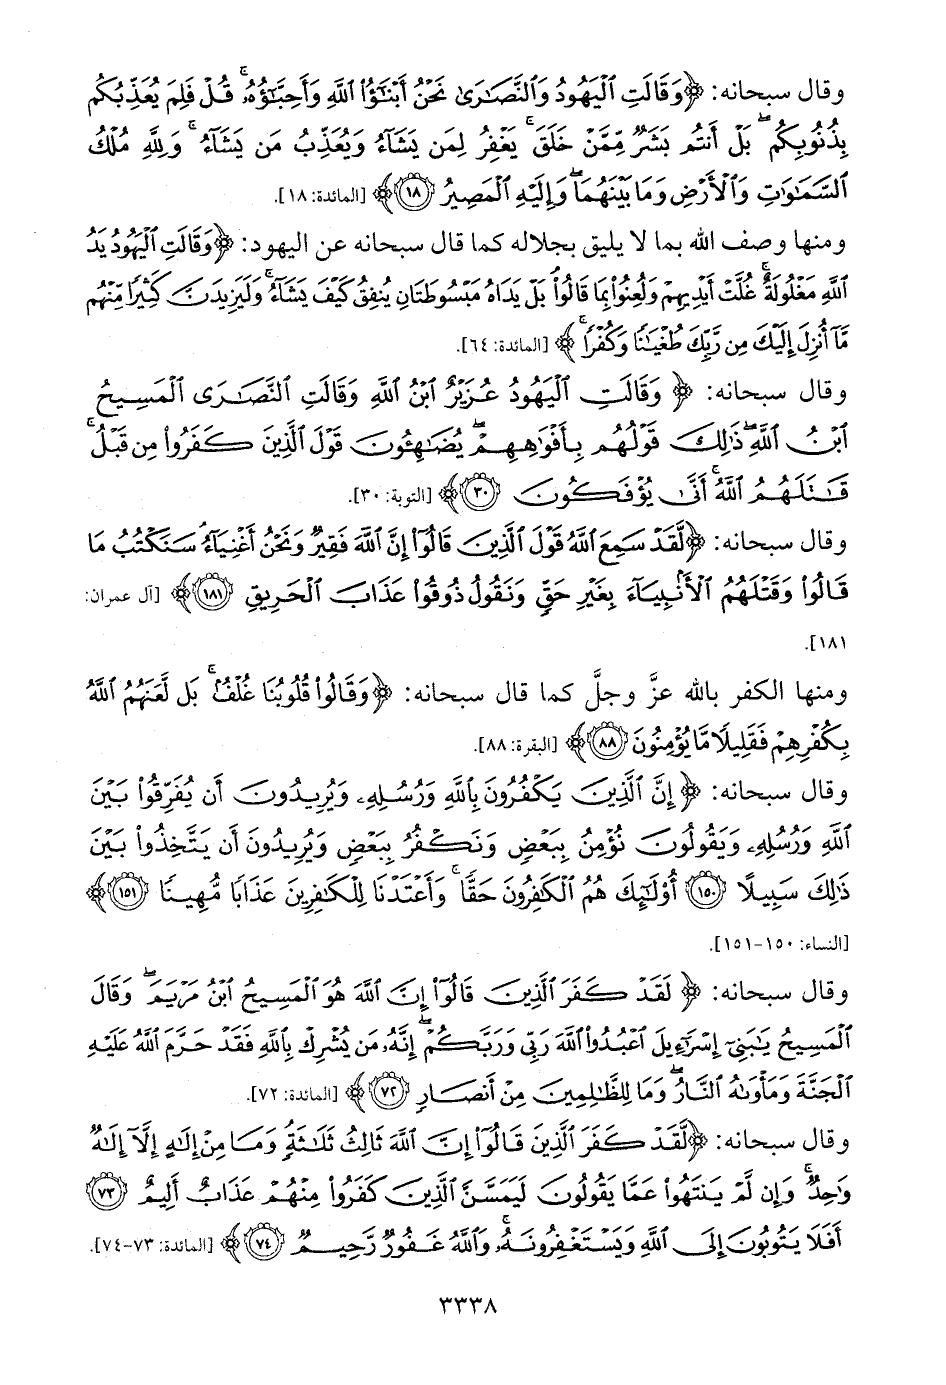 وقال سبحانه: ﴿وَقَالَتِ الْيَهُودُ وَالنَّصَارَىٰ نَحْنُ أَبْنَاؤُا اللَّهِ وَأَحِبَّاؤُهُ ۚ قُلْ فَلِمَ يُعَذِّبُكُم
بِذُنُوبِكُم ۖ بَلْ أَنتُم بَشَرٌ مِّمَّنْ خَلَقَ ۚ يَغْفِرُ لِمَن يَشَاءُ وَيُعَذِّبُ مَن يَشَاءُ ۚ وَلِلَّهِ مُلْكُ
السَّمَاوَاتِ وَالْأَرْضِ وَمَا بَيْنَهُمَا ۖ وَإِلَيْهِ الْمَصِيرُ (١٨)﴾ [المائدة: ١٨].
ومنها وصف الله بما لا يليق بجلاله كما قال سبحانه عن اليهود: ﴿وَقَالَتِ الْيَهُودُ يَدُ
اللَّهِ مَغْلُولَةٌ ۚ غُلَّتْ أَيْدِيهِمْ وَلُعِنُوا بِمَا قَالُوا ۘ بَلْ يَدَاهُ مَبْسُوطَتَانِ يُنفِقُ كَيْفَ يَشَاءُ ۚ وَلَيَزِيدَنَّ كَثِيرًا مِّنْهُم
مَّا أُنزِلَ إِلَيْكَ مِن رَّبِّكَ طُغْيَانًا وَكُفْرًا ۚ﴾ [المائدة: ٦٤].
وقال سبحانه: ﴿وَقَالَتِ الْيَهُودُ عُزَيْرٌ ابْنُ اللَّهِ وَقَالَتِ النَّصَارَى الْمَسِيحُ
ابْنُ اللَّهِ ۖ ذَٰلِكَ قَوْلُهُم بِأَفْوَاهِهِمْ ۖ يُضَاهِئُونَ قَوْلَ الَّذِينَ كَفَرُوا مِن قَبْلُ ۚ
قَاتَلَهُمُ اللَّهُ ۚ أَنَّىٰ يُؤْفَكُونَ (٣٠)﴾ [التوبة: ٣٠].
وقال سبحانه: ﴿لَّقَدْ سَمِعَ اللَّهُ قَوْلَ الَّذِينَ قَالُوا إِنَّ اللَّهَ فَقِيرٌ وَنَحْنُ أَغْنِيَاءُ ۘ سَنَكْتُبُ مَا
قَالُوا وَقَتْلَهُمُ الْأَنبِيَاءَ بِغَيْرِ حَقٍّ وَنَقُولُ ذُوقُوا عَذَابَ الْحَرِيقِ (١٨١)﴾ [آل عمران:
١٨١].
ومنها الكفر بالله عزَّ وجلَّ كما قال سبحانه: ﴿وَقَالُوا قُلُوبُنَا غُلْفٌ ۚ بَل لَّعَنَهُمُ اللَّهُ
بِكُفْرِهِمْ فَقَلِيلًا مَّا يُؤْمِنُونَ (٨٨)﴾ [البقرة: ٨٨].
وقال سبحانه: ﴿إِنَّ الَّذِينَ يَكْفُرُونَ بِاللَّهِ وَرُسُلِهِ وَيُرِيدُونَ أَن يُفَرِّقُوا بَيْنَ
اللَّهِ وَرُسُلِهِ وَيَقُولُونَ نُؤْمِنُ بِبَعْضٍ وَنَكْفُرُ بِبَعْضٍ وَيُرِيدُونَ أَن يَتَّخِذُوا بَيْنَ
ذَٰلِكَ سَبِيلًا (١٥٠) أُولَٰئِكَ هُمُ الْكَافِرُونَ حَقًّا ۚ وَأَعْتَدْنَا لِلْكَافِرِينَ عَذَابًا مُّهِينًا (١٥١)﴾
[النساء: ١٥٠-١٥١].
وقال سبحانه: ﴿لَقَدْ كَفَرَ الَّذِينَ قَالُوا إِنَّ اللَّهَ هُوَ الْمَسِيحُ ابْنُ مَرْيَمَ ۖ وَقَالَ
الْمَسِيحُ يَا بَنِي إِسْرَائِيلَ اعْبُدُوا اللَّهَ رَبِّي وَرَبَّكُمْ ۖ إِنَّهُ مَن يُشْرِكْ بِاللَّهِ فَقَدْ حَرَّمَ اللَّهُ عَلَيْهِ
الْجَنَّةَ وَمَأْوَاهُ النَّارُ ۖ وَمَا لِلظَّالِمِينَ مِنْ أَنصَارٍ (٧٢)﴾ [المائدة: ٧٢].
وقال سبحانه: ﴿لَّقَدْ كَفَرَ الَّذِينَ قَالُوا إِنَّ اللَّهَ ثَالِثُ ثَلَاثَةٍ ۘ وَمَا مِنْ إِلَٰهٍ إِلَّا إِلَٰهٌ
وَاحِدٌ ۚ وَإِن لَّمْ يَنتَهُوا عَمَّا يَقُولُونَ لَيَمَسَّنَّ الَّذِينَ كَفَرُوا مِنْهُمْ عَذَابٌ أَلِيمٌ (٧٣)
أَفَلَا يَتُوبُونَ إِلَى اللَّهِ وَيَسْتَغْفِرُونَهُ ۚ وَاللَّهُ غَفُورٌ رَّحِيمٌ (٧٤)﴾ [المائدة: ٧٣-٧٤].
٣٣٣٨